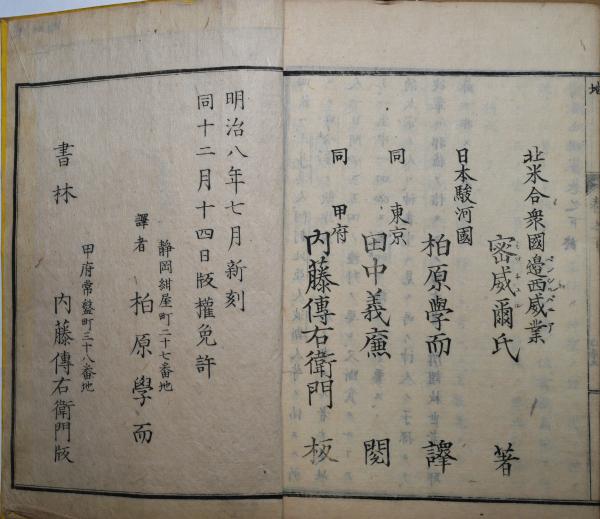 北米合衆國邊西威業
ペンシルベニア
密威爾氏 著
ミッチェル
日本駿河國
柏原學而 譯
同 東京
田中義廉 閲
同 甲府
内藤傳右衛門 板
明治八年七月新刻
同十二月十四日版權免許
靜岡紺屋町二十七番地
譯者 柏原學而
甲府常盤町三十八番地
書林 内藤傳右衛門版